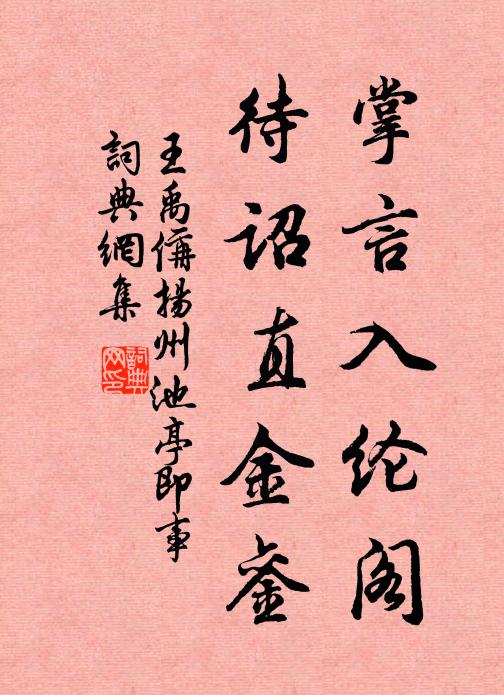 掌言入纶阁
待诏直金銮
王禹偁揚州池亭即事
詞典網集
詞典网印